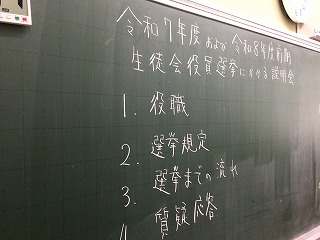 令和7年度および令和8年度前期
生徒会役員選挙にかかる説明会
1. 役職
2. 選挙規定
3. 選挙までの流れ
4. 質疑応答